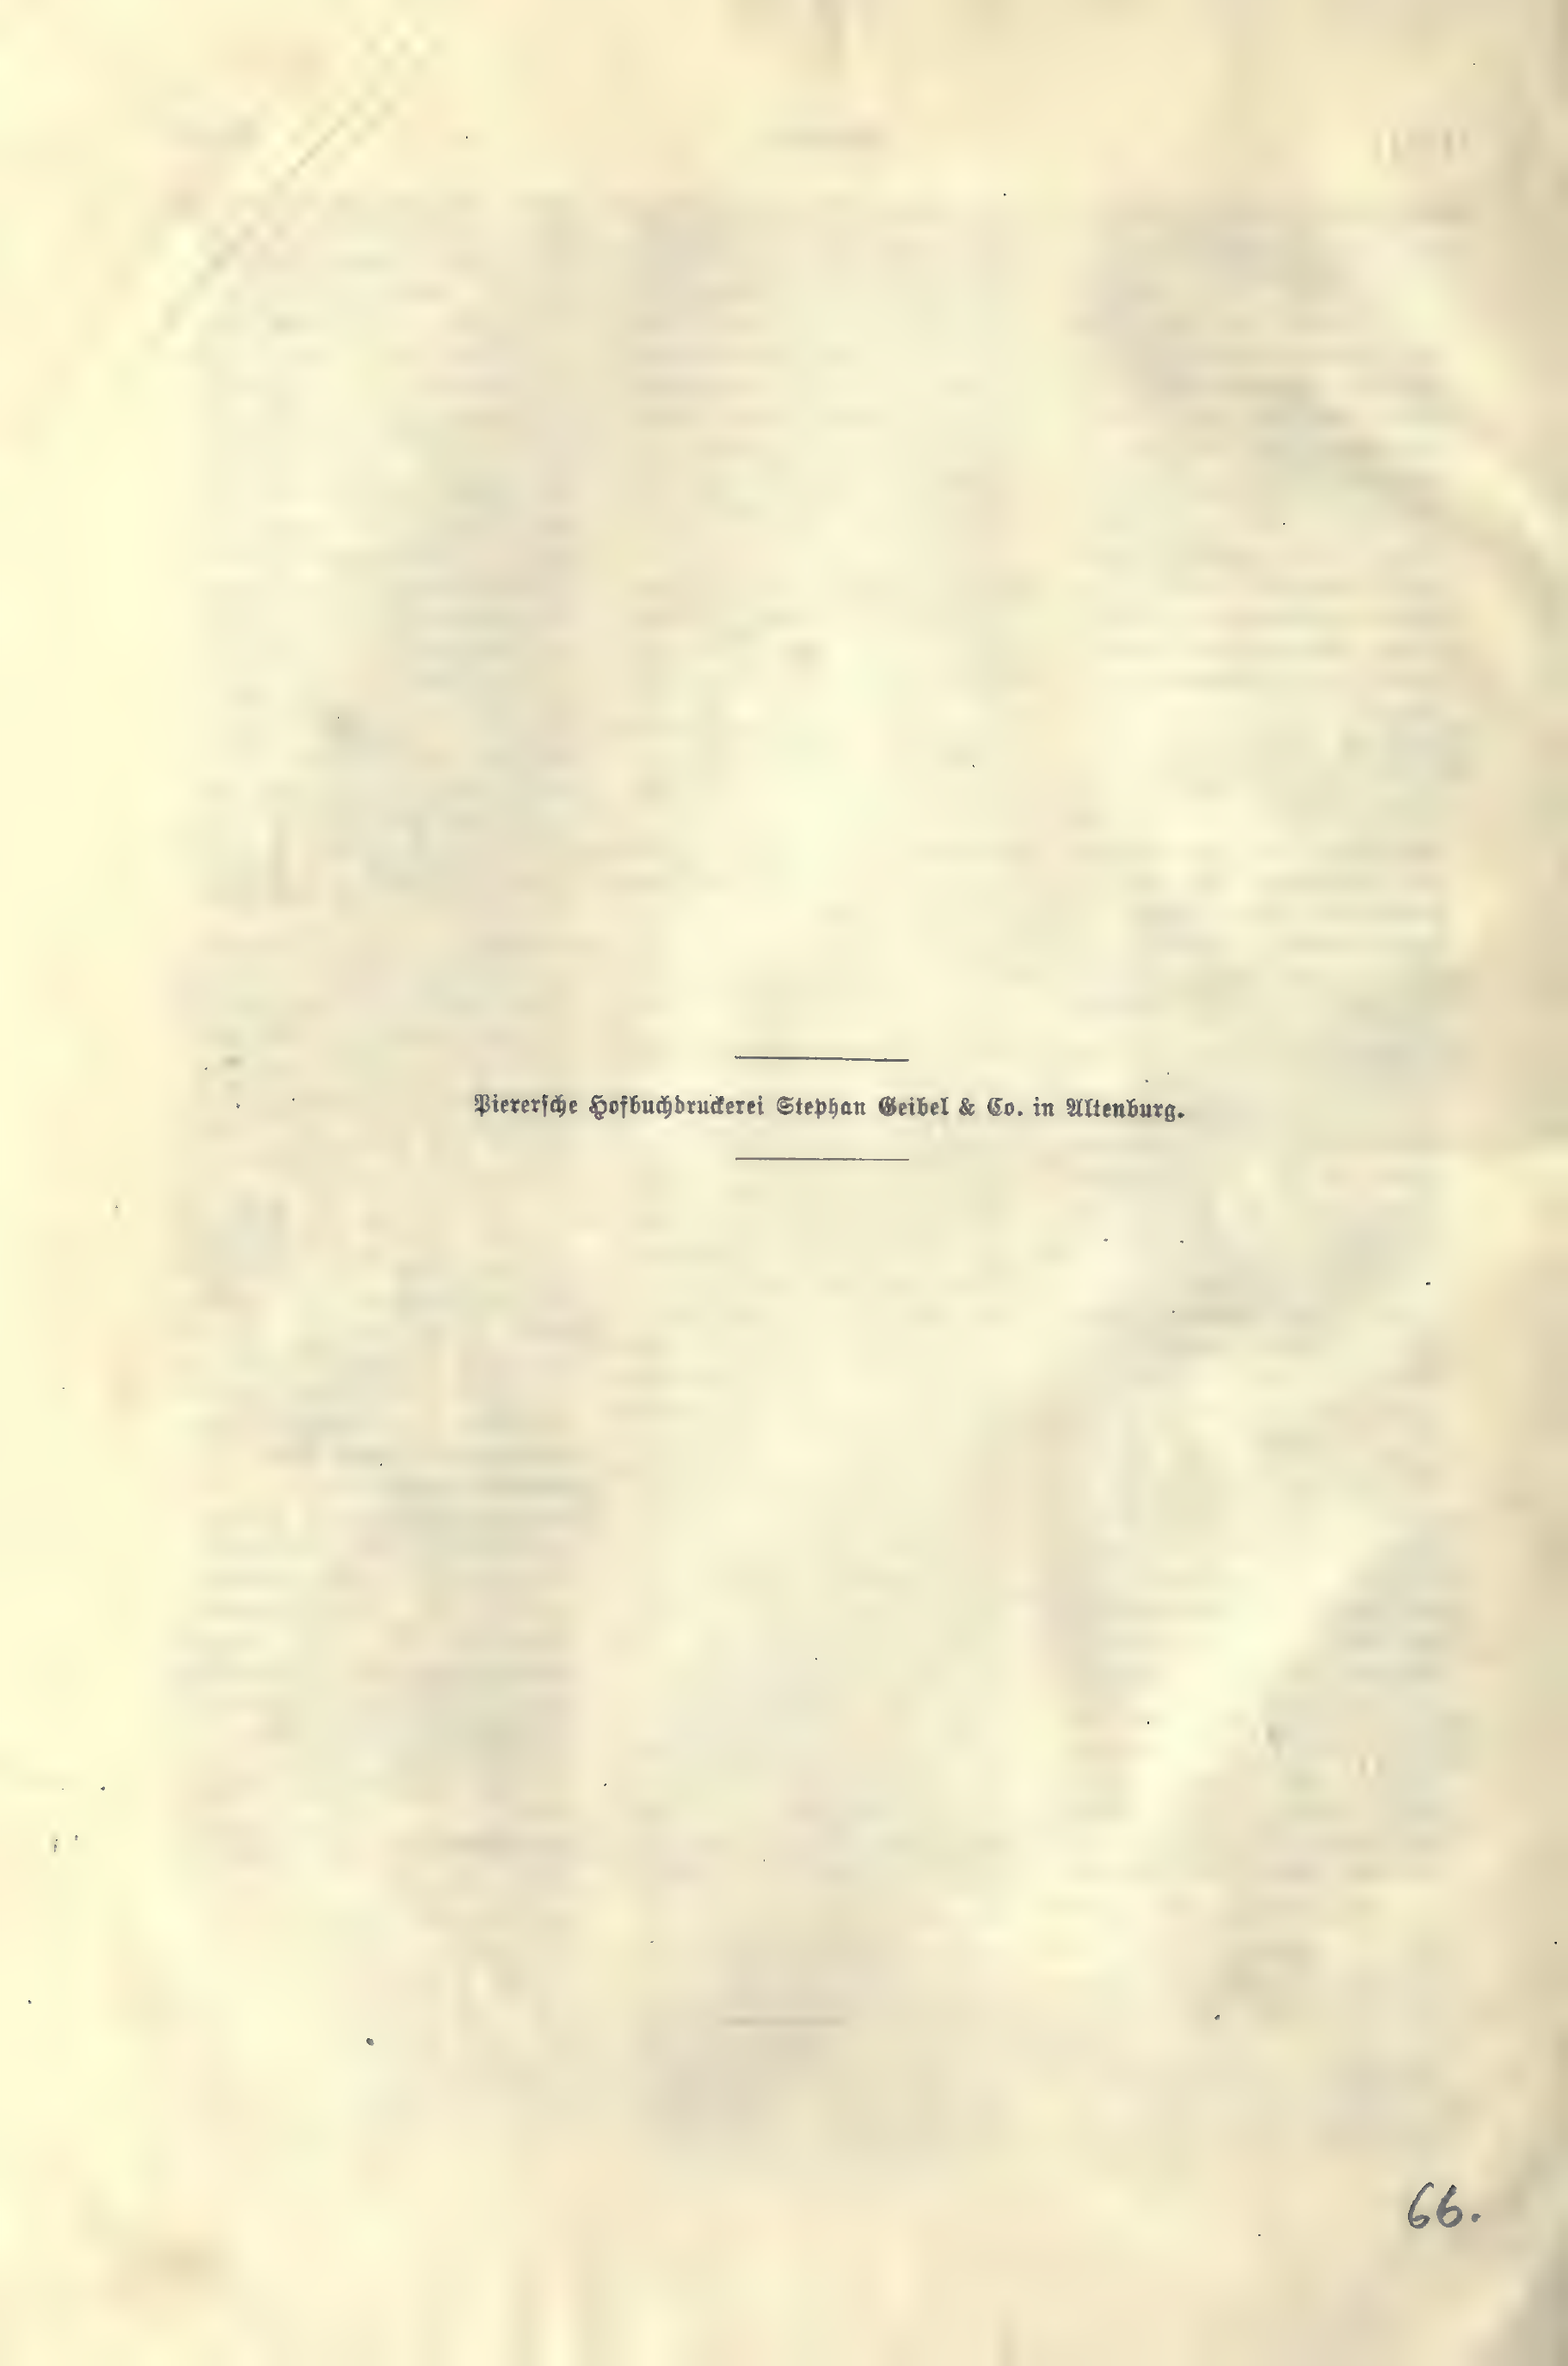 Pierersche Hofbuchdruckerei Stephan Geibel & Co. in Altenburg.
66.